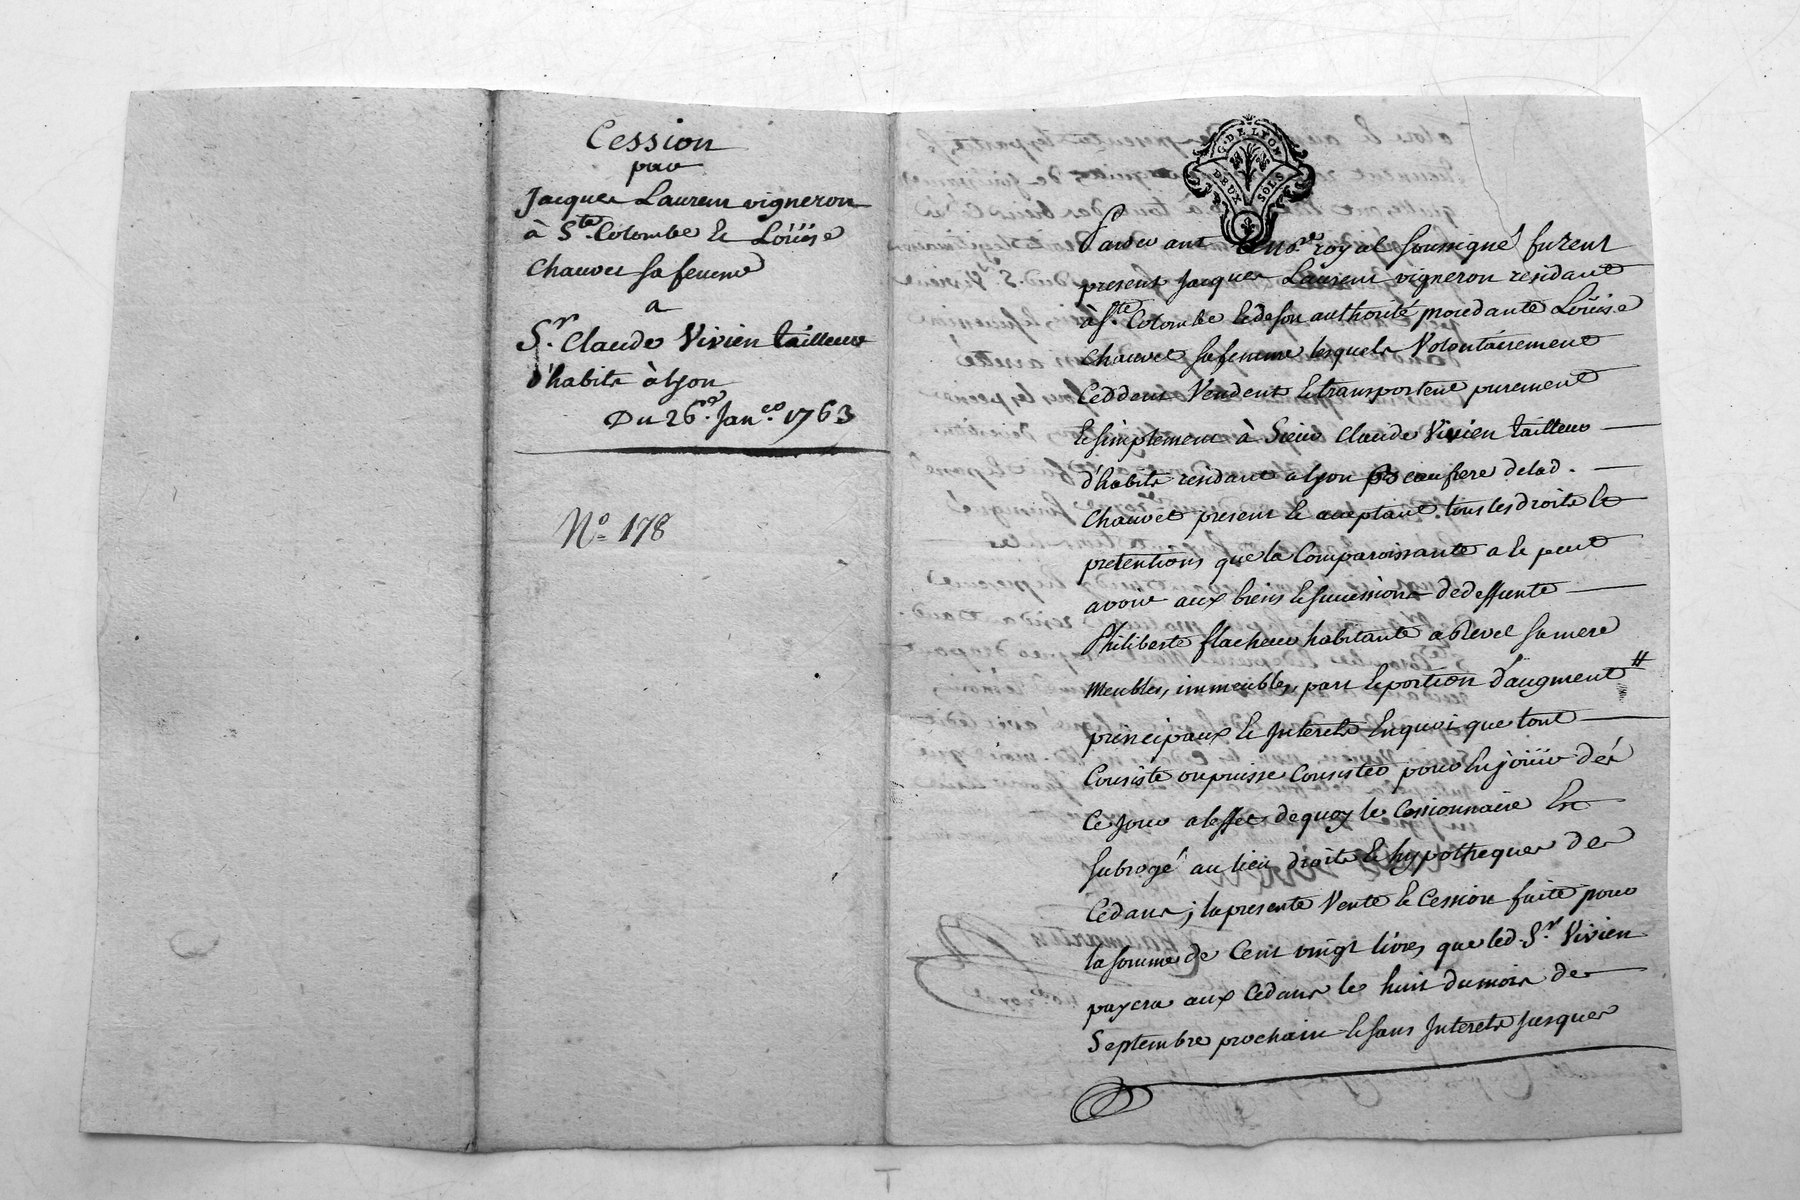 Cession
par
Jacques Laurent vigneron
à Ste. Colombe et Loüise
Chauvet sa femme
a
Sr. Claude Vivien tailleur
d'habits à Lyon
Du 26e. Janer. 1763
No 178
G. DE LYON
DEUX SOLS
Pardevant le nore royal soussigné furent
present Jacques Laurent vigneron residant
à Ste. Colombe et de son authorité procedante Loüise
Chauvet sa femme lesquels Volontairement
Ceddent Vendent et transportent purement
et simplement à Sieur Claude Vivien tailleur
d'habits residant a Lyon beaufrere de lad.
Chauvet present et acceptant tous les droits et
pretentions que la Comparoissante a et peut
avoir aux biens et successions de deffunte
Philiberte flacheur habitante a Revel sa mere
Meubles, immeubles, part et portion d'augment #
principaux et Interets En quoi que tout
Consiste ou puisse Consister pour En joüir dés
Ce jour a leffet de quoy le Cessionnaire Est
subrogé au lieu droits et hypotheques des
Cédans; la presente Vente et Cession faite pour
la somme de Cent vingt livres que led. Sr. Vivien
payera aux Cédans le huit du mois de
Septembre prochain et sans Interets jusques